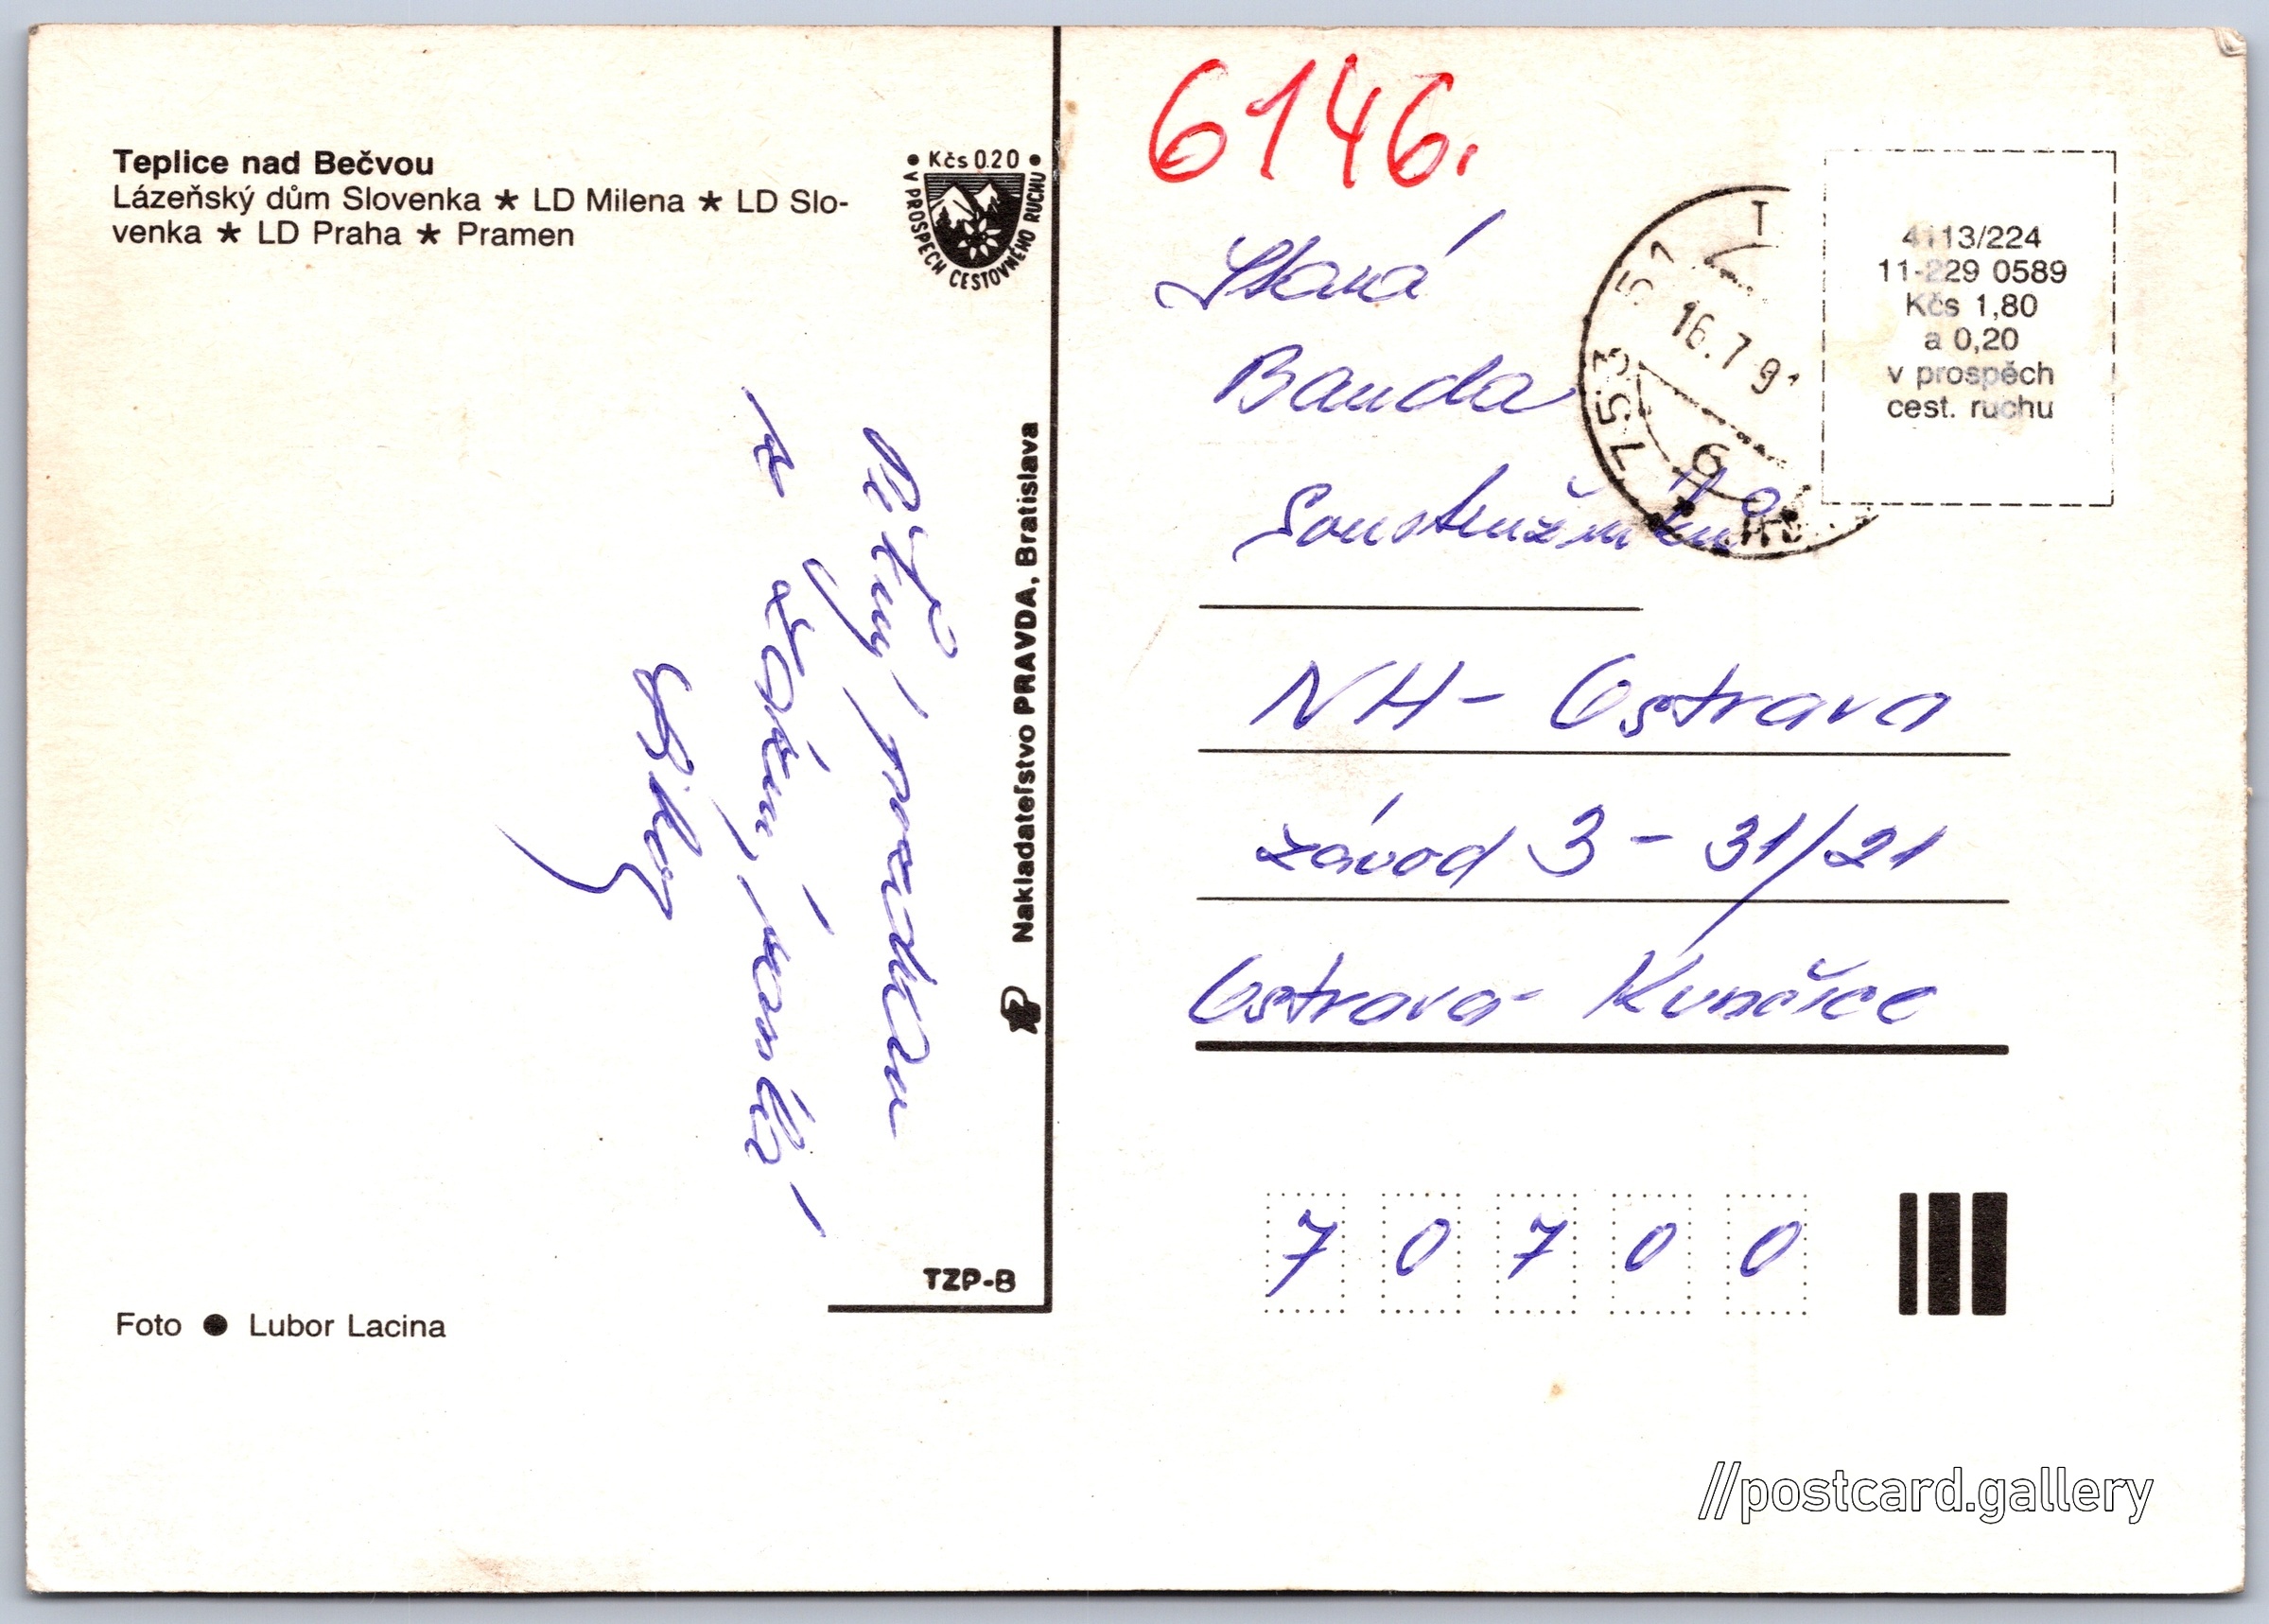 Teplice nad Bečvou
Lázeňský dům Slovenka ★ LD Milena ★ LD Slo-
venka ★ LD Praha ★ Pramen
• Kčs 0.20 •
V PROSPĚCH CESTOVNÉHO RUCHU
pozdrav
z lázní,
Nakladateľstvo PRAVDA, Bratislava
TZP-8
Foto ● Lubor Lacina
6146.
Stará
Banda
Soustružníků
NH- Ostrava
závod 3 - 31/21
Ostrava- Kunčice
7 0 7 0 0
753 51 T
16.7.91
6
4113/224
11-229 0589
Kčs 1,80
a 0,20
v prospěch
cest. ruchu
//postcard.gallery